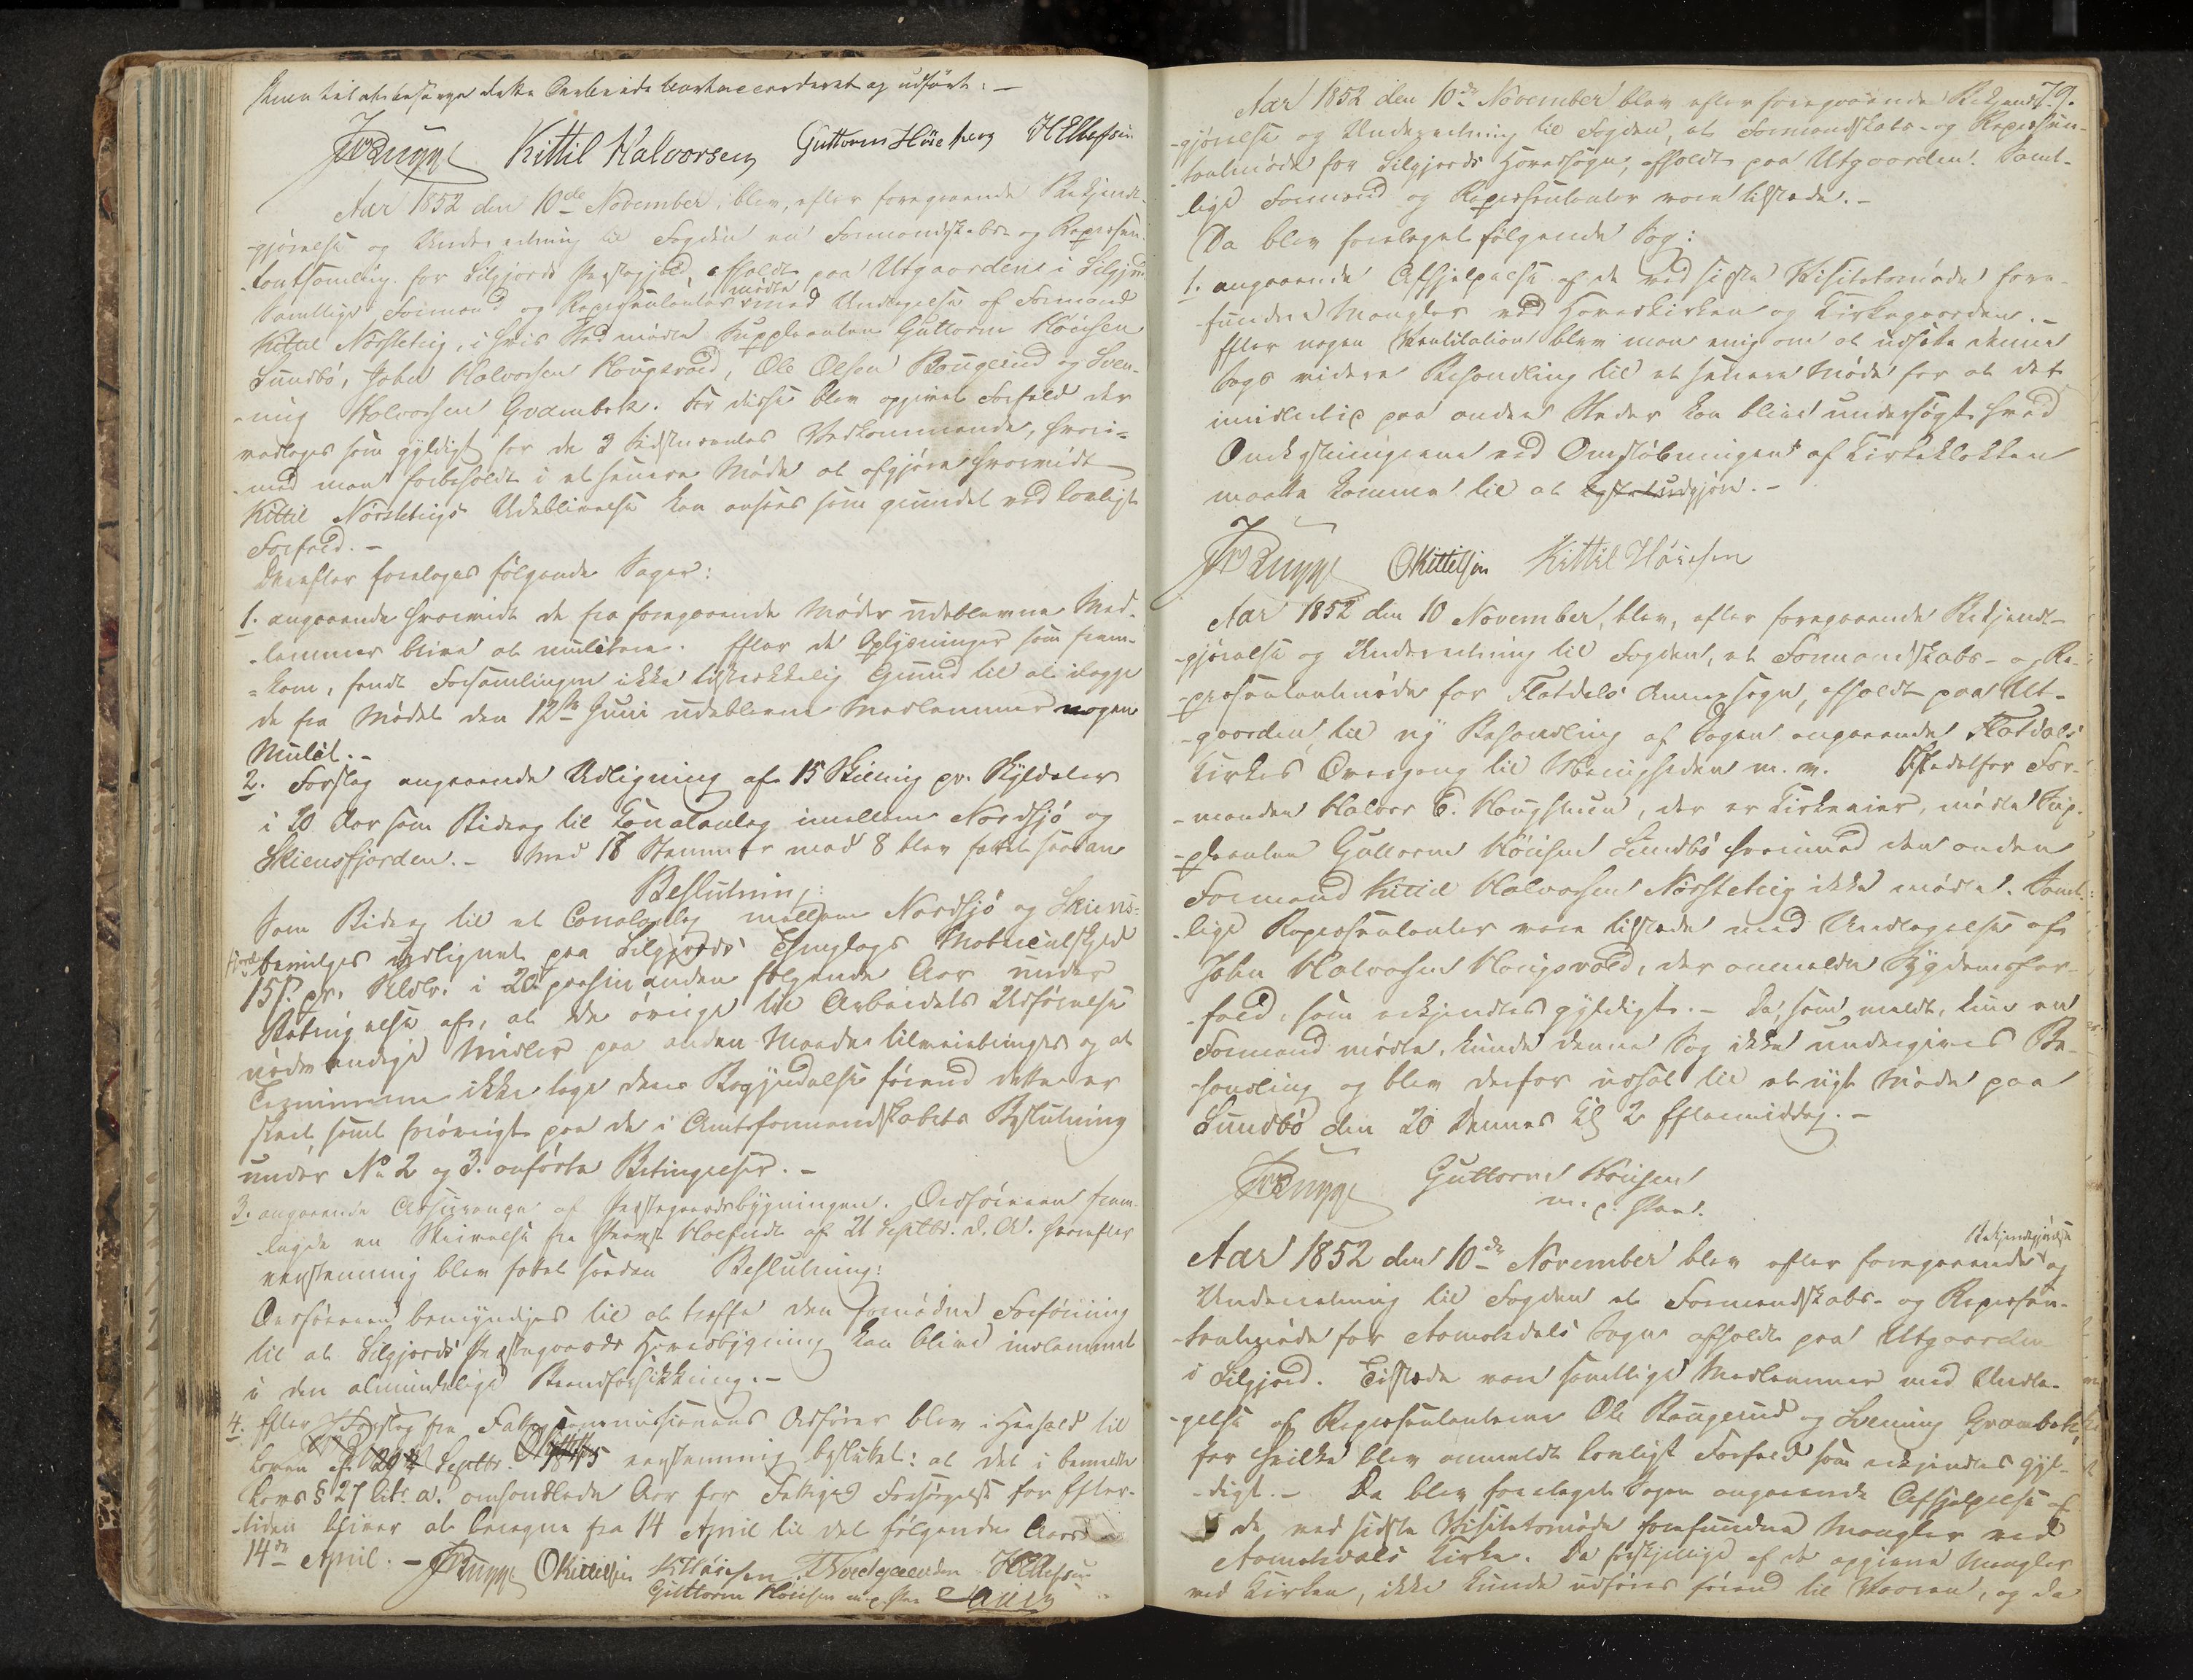 dette Arbeide bortaccorderet og udført: —
JWBugge Kittil Halvorsen Guttorm Høie berg H Ellefsen
Aar 1852 den 10de November, blev, efter foregaaende Bekjendt-
-gjørelse og Underretning til Fogden en Formandskabs- og Repræsen-
-tantsamling for Silgjords Præstegjeld, afholdt paa Utgaardene i Silgjord
Samtlige Formænd og Repræsentanter mødte med Undtagelse af Formand
Kittil Nørsteberg, i hvis Sted mødte Suppleanten Guttorm Høiesen
Sundbø, John Halvorsen Haugsvold, Ole Olsen Baugerud og Sven-
-nung Halvorsen Grambæk. For disse blev opgivet Forfald der
modtoges som gyldigt for de 3 Sidstnævntes Vedkommende, hvori-
-mod man forbeholdt i et senere Møde at afgjøre hvorvidt
Kittil Nørstebergs Udeblivelse kan ansees som grundet ved lovligt
Forfald. —
Derefter foretoges følgende Sager:
1. angaaende hvorvidt de fra foregaaende Møder udeblevne Med-
-lemmer blive at mulctere. Efter de Oplysninger som frem-
=kom, fandt Forsamlingen ikke tilstrækkelig Grund til at ilægge
de fra Mødet den 12te Juni udeblevne Medlemmer nogen
Mulct. —
2. Forslag angaaende Udligning af 15 Skilling pr. Skyldaler
i 20 Aar som Bidrag til Canalanlæg imellem Nordsjø og
Skiensfjorden. — Med 18 Stemmer mod 8 blev fattet saadan
Beslutning:
Som Bidrag til et Canalanlæg mellem Nordsjø og Skiens-
fjord bevilges udlignet paa Silgjords Thinglags Matriculskyld
15 s. pr. Skldlr. i 20 paa hinanden følgende Aar under
Betingelse af, at de øvrige til Arbeidets Udførelse
nødvendige Midler paa anden Maade tilveiebringes og at
Terminerne ikke tage deres Begyndelse førend dette er
skeet samt forøvrigt paa de i Amtsformandskabets Beslutning
under No 2 og 3. anførte Betingelser. —
3. angaaende Assurance af Præstegaardsbygningen. Ordføreren frem-
-lagde en Skrivelse fra Provst af 21 Septbr. d. A. hvorefter
eenstemmig blev fattet saadan Beslutning:
Ordføreren bemyndiges til at træffe den fornødne Forføining
til at Silgjords Præstegaards Hovedbygning kan blive indlemmet
i den almindelige Brandforsikkring. —
4. Efter Forslag fra Fattigcommissionens Ordfører blev i Henhold til
Loven af 20de Septbr. 1845 eenstemmig besluttet: at det i bemeldte
Lovs § 27 litr. a. omhandlede Aar for Fattiges Forsørgelse for Efter-
-tiden bliver at beregne fra 14 April til det følgende Aars
14de April. — JWBugge OKittilsen K Høiesen H Ellefsen
Guttorm Høiesen m. p. Pen

79.
Aar 1852 den 10de November blev efter foregaaende Bekjendt-
-gjørelse og Underretning til Fogden, et Formandskabs- og Repræsen-
-tantmøde for Silgjords Hovedsogn, afholdt paa Utgaarden. Samt-
-lige Formænd og Repræsentanter vare tilstede. —
Da blev foretaget følgende Sag:
1. angaaende Afhjelpelse af de ved sidste Visitatsmøde fore-
-fundne Mangler ved Hovedkirken og Kirkegaarden. —
Efter nogen Ventilation blev man enig om at udsætte denne
Sags videre Behandling til et senere Møde for at det
imidlertid paa andre Steder kan blive undersøgt hvad
Omkostningerne ved Omstøbningen af Kirkeklokken
maatte komme til at udgjøre. —
JWBugge OKittilsen Kittil Høiesen
Aar 1852 den 10 November, blev, efter foregaaende Bekjendt-
-gjørelse og Underretning til Fogden, et Formandskabs- og Re-
-præsentantmøde for Flatdals Annexsogn, afholdt paa Ut-
-gaarden, til ny Behandling af Sagen angaaende Flatdals
Kirkes Overgang til Menigheden m. v. Istedetfor For-
-manden Halvor T. Haugsmun, der er Kirkeeier, mødte Sup-
-pleanten Guttorm Høiesen Sundbø hvorimod den anden
Formand Kittil Halvorsen Nørsteberg ikke mødte. Samt-
-lige Repræsentanter vare tilstede med Undtagelse af
John Halvorsen Haugsvold, der anmeldte Sygdomsfor-
-fald, som erkjendtes gyldigt. — Da, som meldt, kun en
Formand mødte, kunde denne Sag ikke undergives Be-
-handling og blev derfor udsat til et nyt Møde paa
Sundbø den 20 dennes Kl 2 Eftermiddag. —
JWBugge Guttorm Høiesen
m. p. Pen.
Aar 1852 den 10de November blev efter foregaaende Bekjendtgjørelse og
Underretning til Fogden et Formandskabs- og Repræsen-
-tantmøde for Aamotsdals Sogn afholdt paa Utgaarden
i Silgjord. Tilstede vare samtlige Medlemmer med Undta-
-gelse af Repræsentanterne Ole Baugerud og Svennung Grambæk,
for hvilke blev anmeldt lovligt Forfald som erkjendtes gyl-
-digt. — Da blev foretaget Sagen angaaende Afhjelpelse af
de ved sidste Visitatsmøde forefundne Mangler ved
Aamotsdals Kirke. Da forskjellige af de opgivne Mangler
ved Kirken, ikke kunde udføres førend til Vaaren, og da